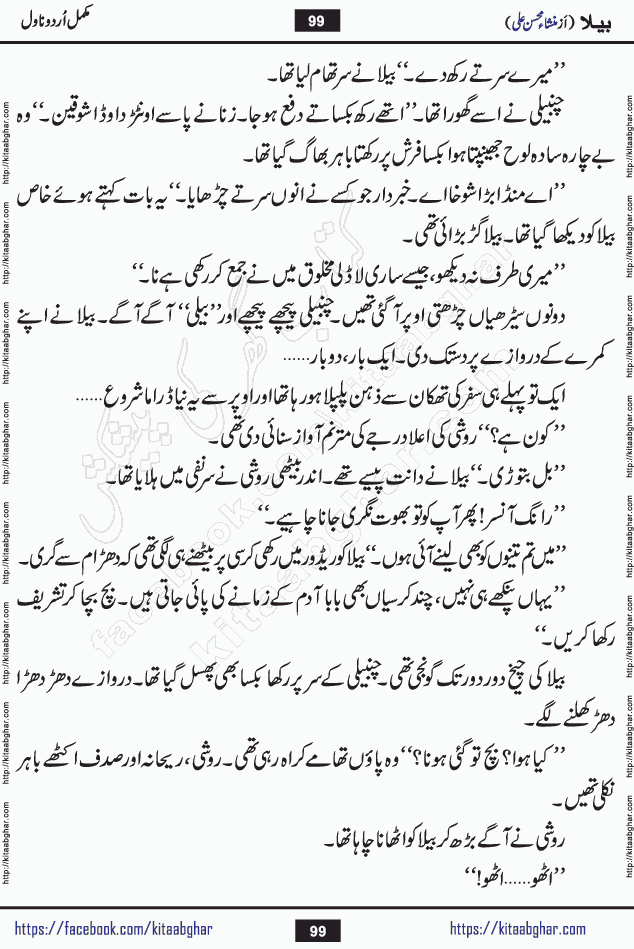 بیلا (از منشاء محسن علی)
99
مکمل اُردو ناول
’’میرے سر تے رکھ دے۔‘‘ بیلا نے سر تھام لیا تھا۔
چنبیلی نے اسے گھورا تھا۔ ’’اتھے رکھ بکسا تے دفع ہو جا۔ زنانے پاسے اونڑ دا وڈا شوقین۔‘‘ وہ
بے چارہ سادہ لوح جھینپتا ہوا بکسا فرش پر رکھتا باہر بھاگ گیا تھا۔
’’اے منڈا بڑا شوخا اے۔ خبردار جو کسے نے انوں سر تے چڑھایا۔‘‘ یہ بات کہتے ہوئے خاص
بیلا کو دیکھا گیا تھا۔ بیلا گڑبڑائی تھی۔
’’میری طرف نہ دیکھو، جیسے ساری لاڈلی مخلوق میں نے جمع کر رکھی ہے نا۔‘‘
دونوں سیڑھیاں چڑھتی اوپر آ گئی تھیں۔ چنبیلی پیچھے پیچھے اور ’’بیلی‘‘ آگے آگے۔ بیلا نے اپنے
کمرے کے دروازے پر دستک دی۔ ایک بار، دو بار......
ایک تو پہلے ہی سفر کی تھکان سے ذہن پلپلا ہو رہا تھا اور اوپر سے یہ نیا ڈراما شروع......
’’کون ہے؟‘‘ روشی کی اعلا درجے کی مترنم آواز سنائی دی تھی۔
’’بل بتوڑی۔‘‘ بیلا نے دانت پیسے تھے۔ اندر بیٹھی روشی نے سر نفی میں ہلایا تھا۔
’’رانگ آنسر! پھر آپ کو تو بھوت نگری جانا چاہیے۔‘‘
’’میں تم تینوں کو بھی لینے آئی ہوں۔‘‘ بیلا کوریڈور میں رکھی کرسی پر بیٹھنے ہی لگی تھی کہ دھڑام سے گری۔
’’یہاں پنکھے ہی نہیں، چند کرسیاں بھی بابا آدم کے زمانے کی پائی جاتی ہیں۔ بچ بچا کر تشریف
رکھا کریں۔‘‘
بیلا کی چیخ دور دور تک گونجی تھی۔ چنبیلی کے سر پر رکھا بکسا بھی پھسل گیا تھا۔ دروازے دھڑ دھڑا
دھڑ کھلنے لگے۔
’’کیا ہوا؟ بچ تو گئی ہو نا؟‘‘ وہ پاؤں تھامے کراہ رہی تھی۔ روشی، ریحانہ اور صدف اکٹھے باہر
نکلی تھیں۔
روشی نے آگے بڑھ کر بیلا کو اٹھانا چاہا تھا۔
’’اٹھو......اٹھو!‘‘
https://facebook.com/kitaabghar
99
https://kitaabghar.com
http://kitaabghar.com
کتاب گھر کی پیشکش
facebook.com/kitaabghar
kitaabghar.com